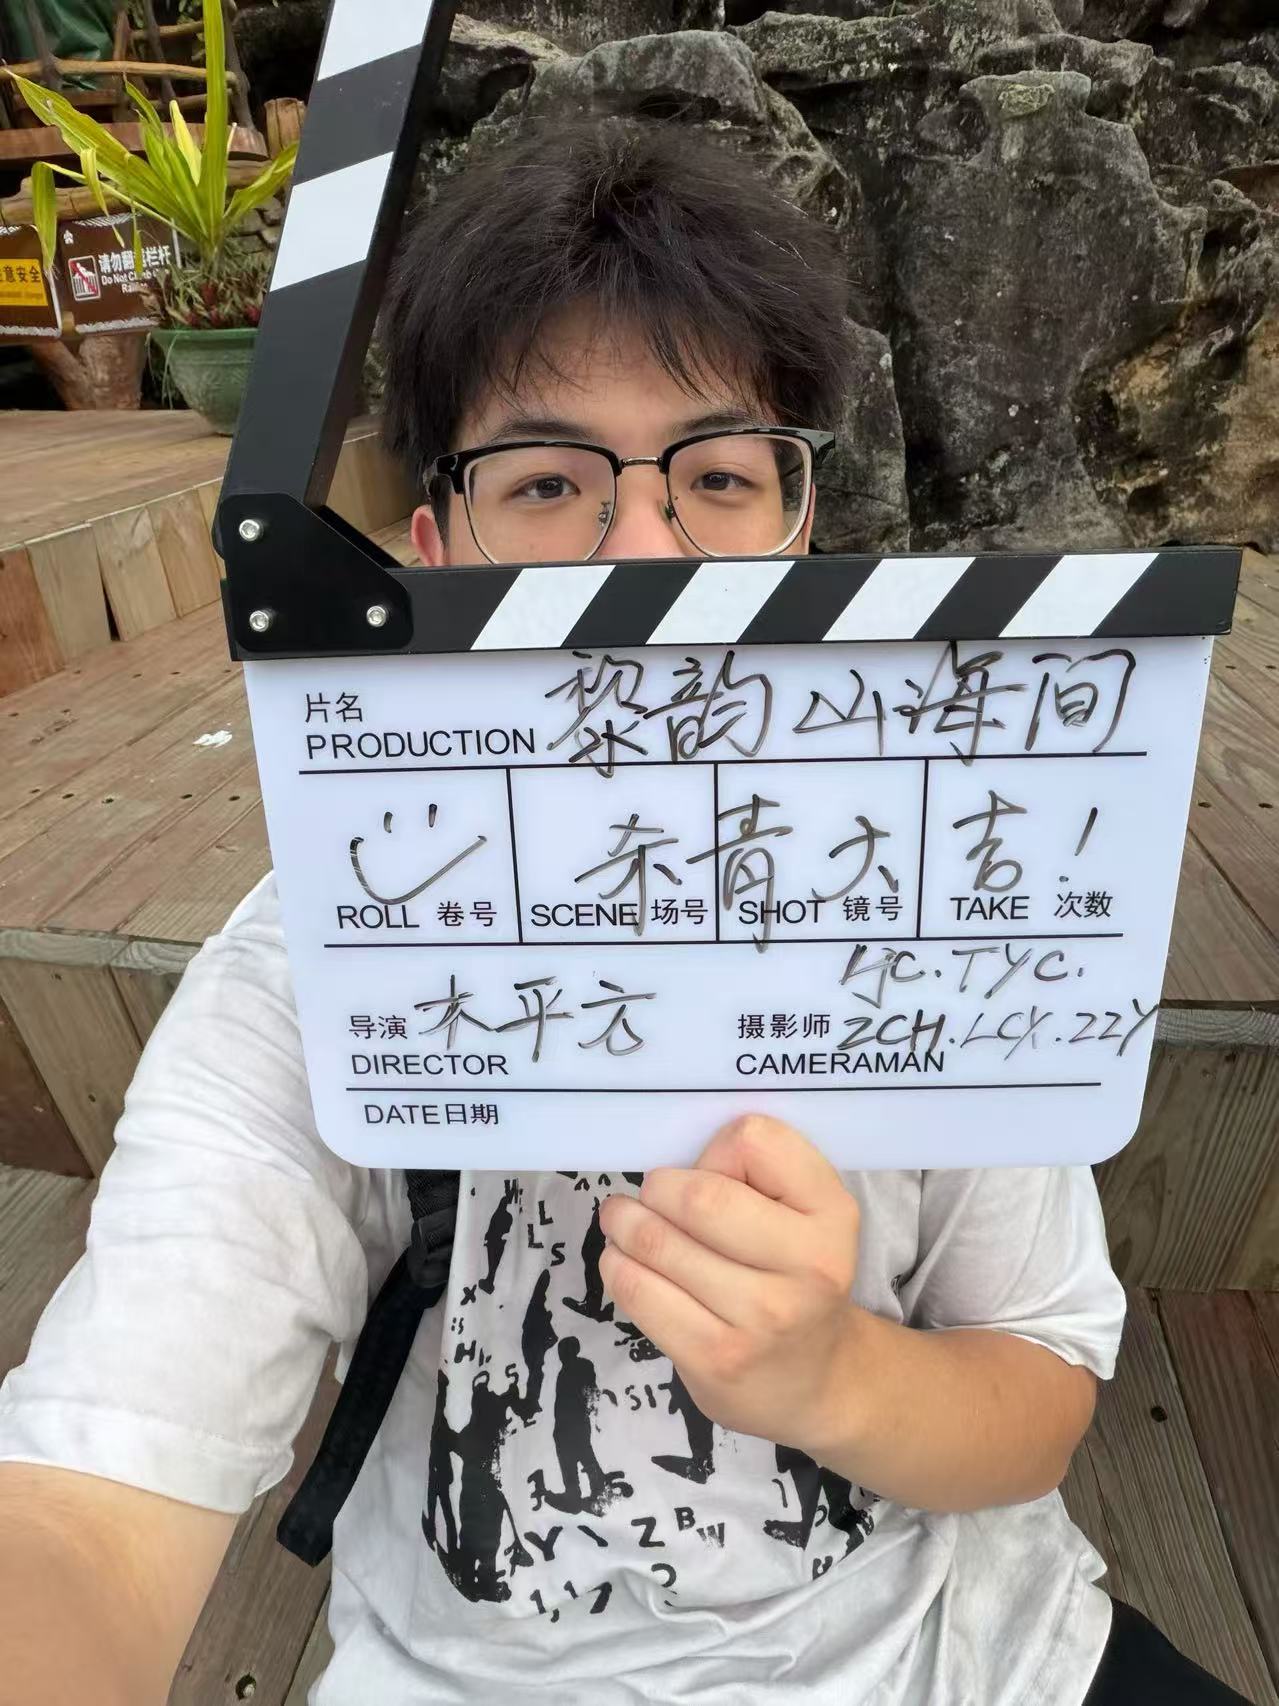 意安全
请勿翻越栏杆
Do Not Climb
片名
PRODUCTION 黎韵山海间
杀青大吉!
ROLL 卷号 SCENE 场号 SHOT 镜号 TAKE 次数
导演 木平方
DIRECTOR
LJC.TYC.
摄影师 ZCH.LCX.ZZY
CAMERAMAN
DATE日期